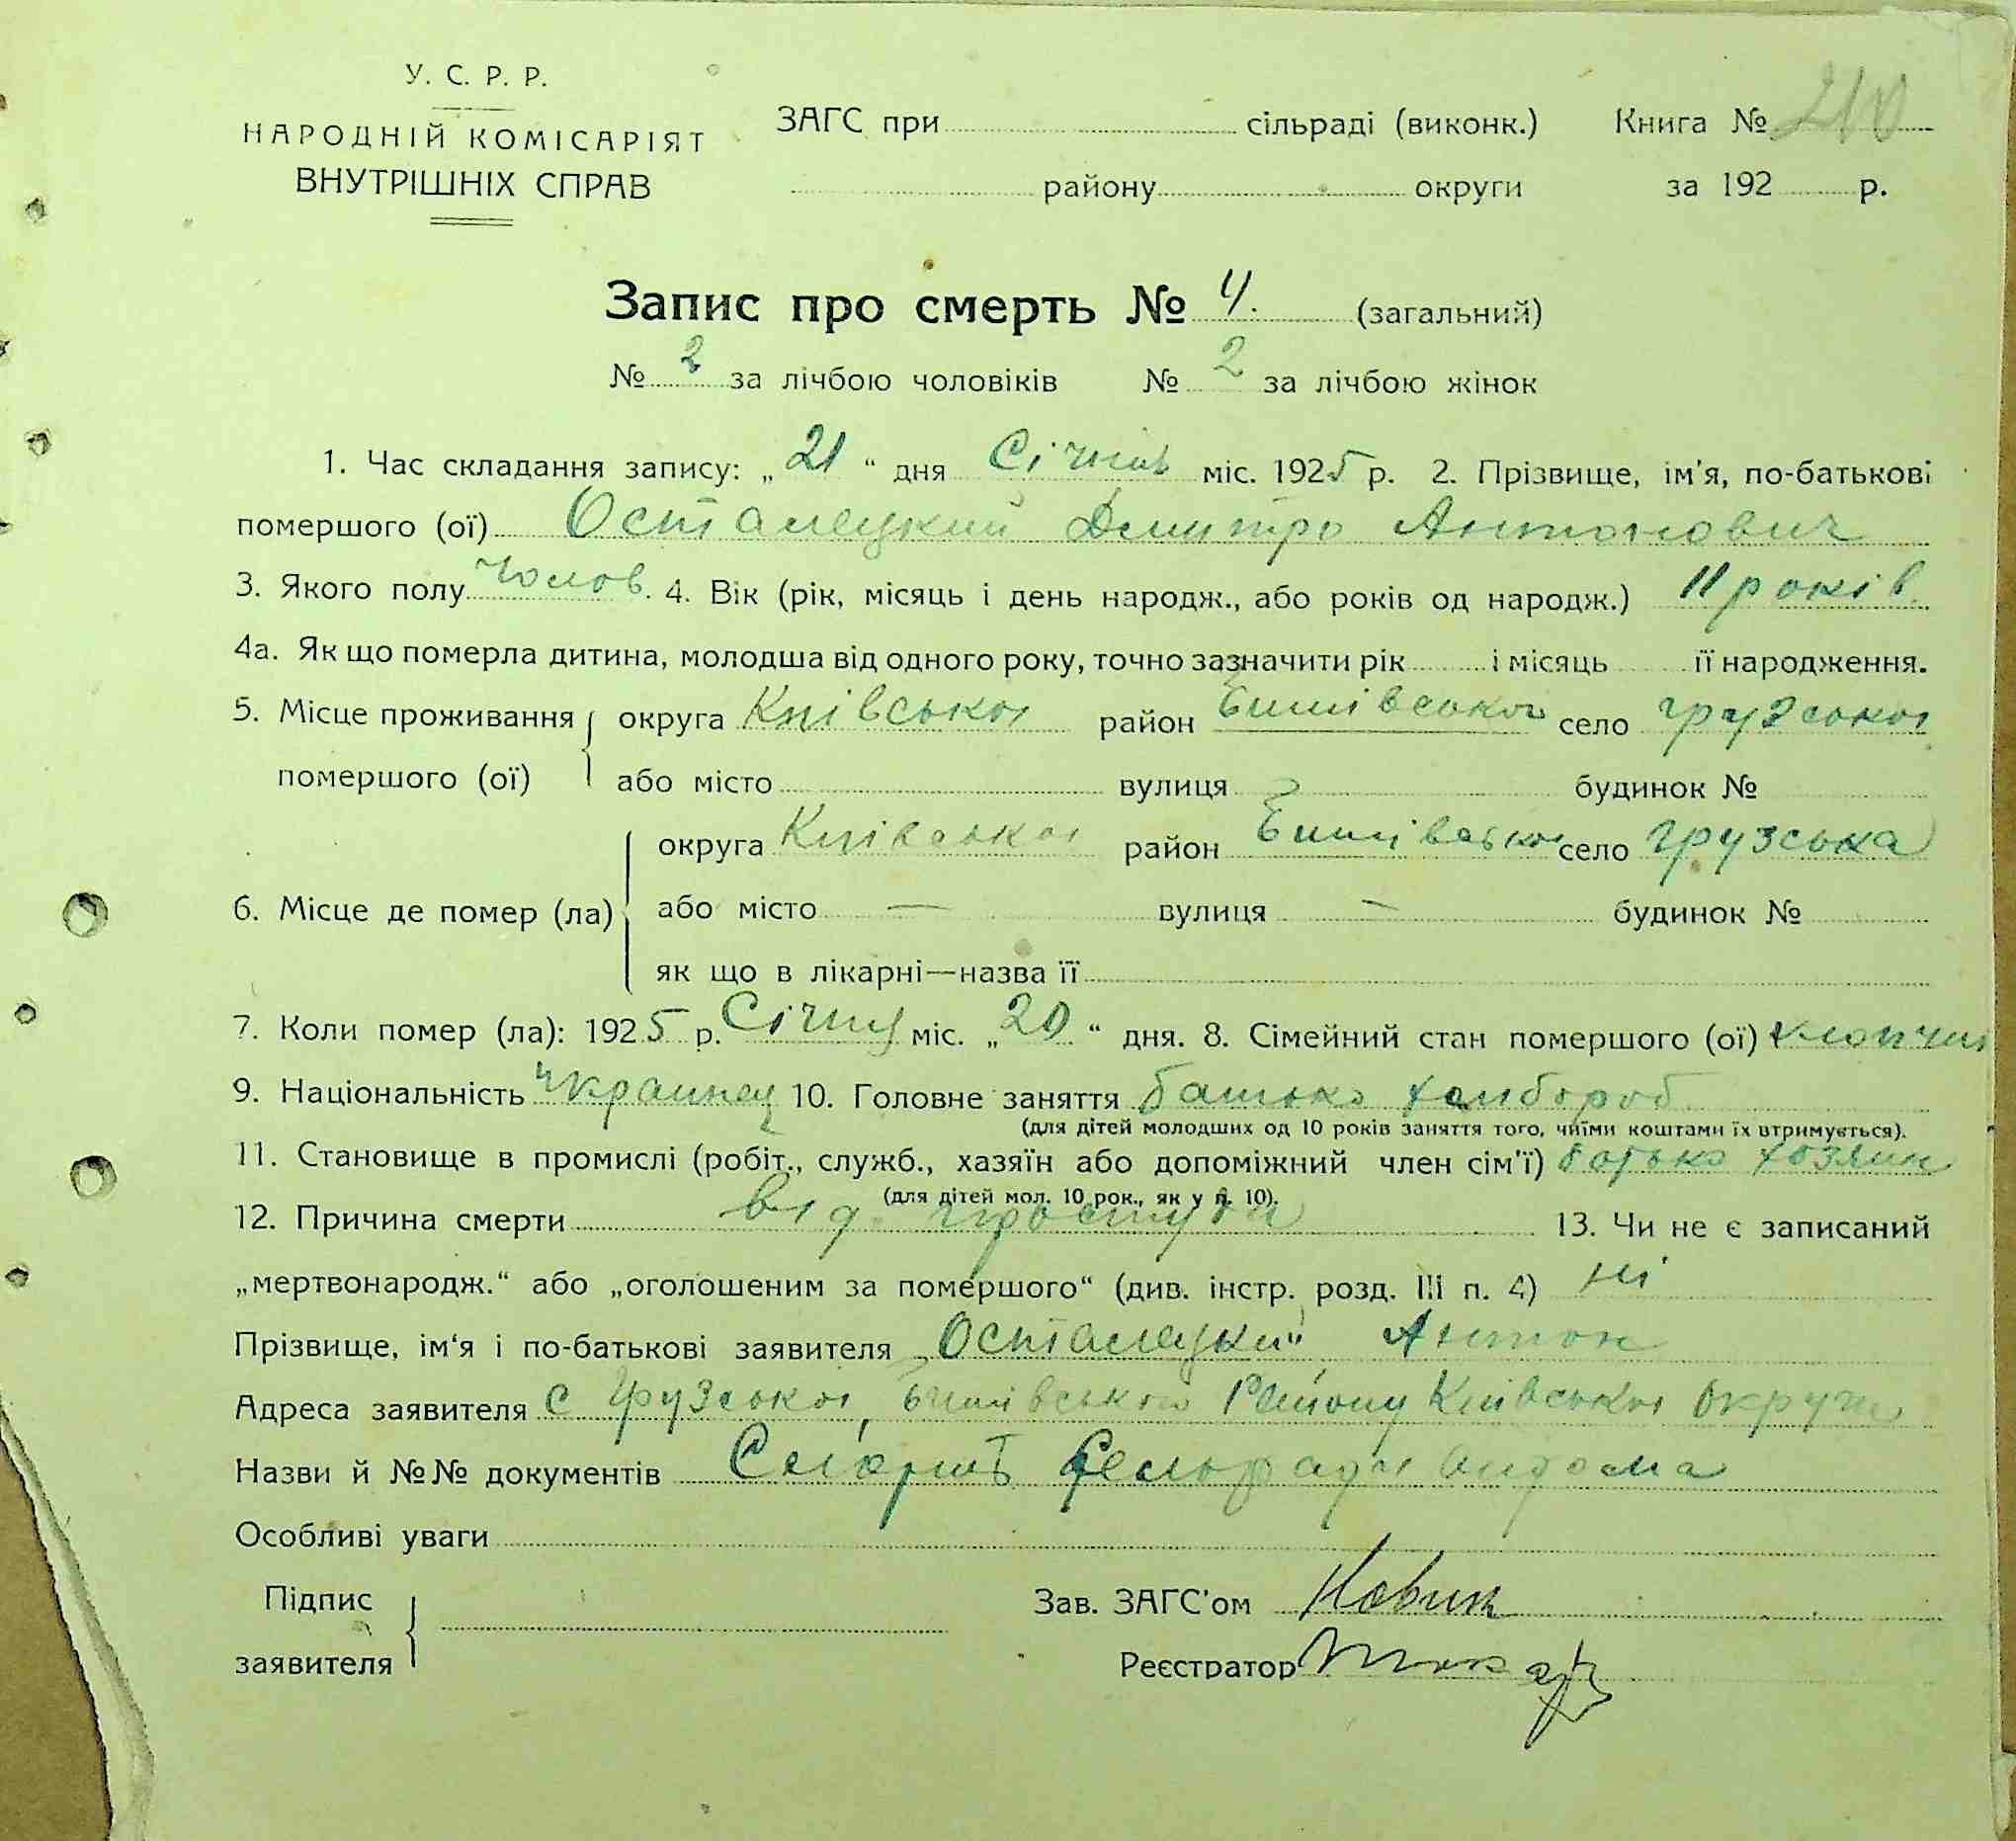 У. С. Р. Р.
НАРОДНІЙ КОМІСАРІЯТ
ВНУТРІШНІХ СПРАВ
ЗАГС при сільраді (виконк.) Книга № 210
району округи за 192 р.
Запис про смерть № 4. (загальний)
№ 2 за лічбою чоловіків № 2 за лічбою жінок
1. Час складання запису: „21“ дня Січня міс. 1925 р. 2. Прізвище, ім'я, по-батькові
помершого (ої) Осталецкий Дмитро Антонович
3. Якого полу Чолов. 4. Вік (рік, місяць і день народж., або років од народж.) 11 років
4а. Як що померла дитина, молодша від одного року, точно зазначити рік і місяць її народження.
5. Місце проживання округа Київської район село Грузської
помершого (ої) або місто вулиця будинок №
округа Київської район село Грузська
6. Місце де помер (ла) або місто — вулиця — будинок №
як що в лікарні—назва її
7. Коли помер (ла): 1925 р. Січня міс. „20“ дня. 8. Сімейний стан помершого (ої)
9. Національність Украинец 10. Головне заняття батько хлибороб
(для дітей молодших од 10 років заняття того, чиїми коштами їх втримується).
11. Становище в промислі (робіт., служб., хазяїн або допоміжний член сім'ї) батько хозяин
(для дітей мол. 10 рок., як у п. 10).
12. Причина смерти від простуди 13. Чи не є записаний
„мертвонародж.“ або „оголошеним за помершого“ (див. інстр. розд. III п. 4) ні
Прізвище, ім‘я і по-батькові заявителя Осталецкий Антон
Адреса заявителя с Грузської, Району Київської Округи
Назви й №№ документів Сельради
Особливі уваги
Підпис
заявителя
Зав. ЗАГС'ом Новик
Реєстратор